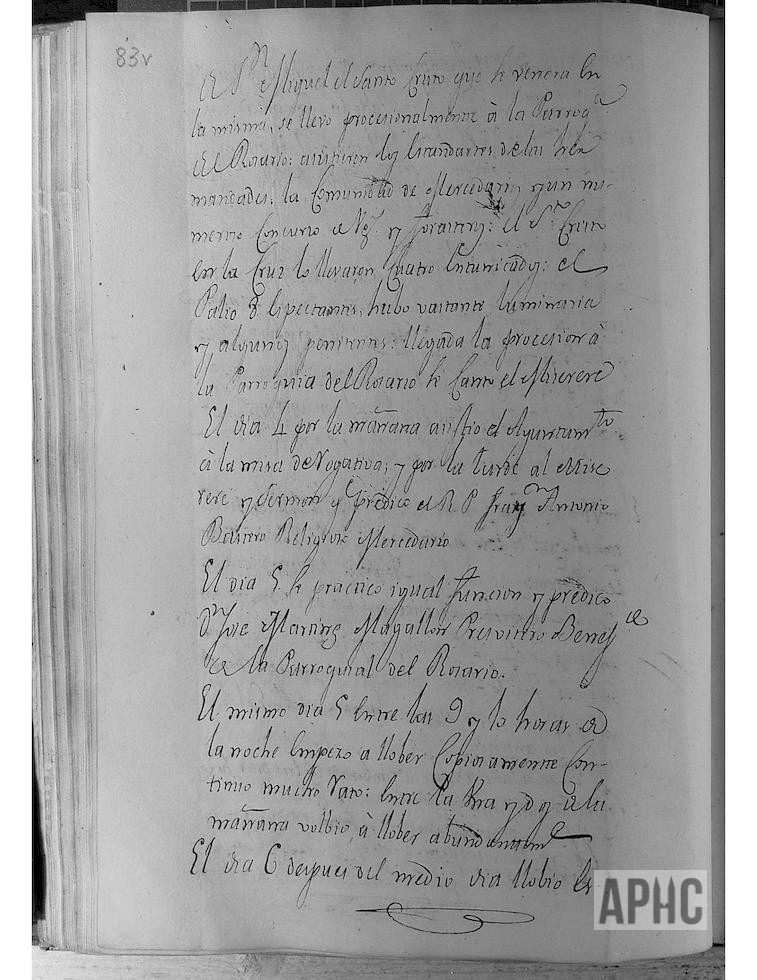 83v
de Sn. Miguel el Santo Cristo que se venera en
la misma, se llevo procesionalmente à la Parroqa.
del Rosario: asistieron los Estandartes de las her
mandades: la Comunidad de Mercedarios y un nu-
meroso Concurso de Ns. y forasteros: el Sto. Cristo
en la Cruz lo llevaron Cuatro Entunicados: el
Palio 8 Espectantes; hubo vastante luminaria
y algunos penitentes: llegada la procesion à
la Parroquia del Rosario se Canto el Miserere
El dia 4 por la mañana asistio el Ayuntamto.
à la misa de Rogativa; y por la tarde al Mise
rere y Sermon q predico el R. P. fray Antonio
Religioso Mercedario
El dia 5 se practico igual funcion y predico
Dn. Jose Martinez Magallon Presvitero Benefdo
de la Parroquial del Rosario.
El mismo dia 5 entre las 9 y 10 horas de
la noche empezo a llober Copiosamente Con-
tinuo mucho rato: entre la una y dos de la
mañana volbio à llober abundantme.
El dia 6 despues del medio dia llobio es
APHC